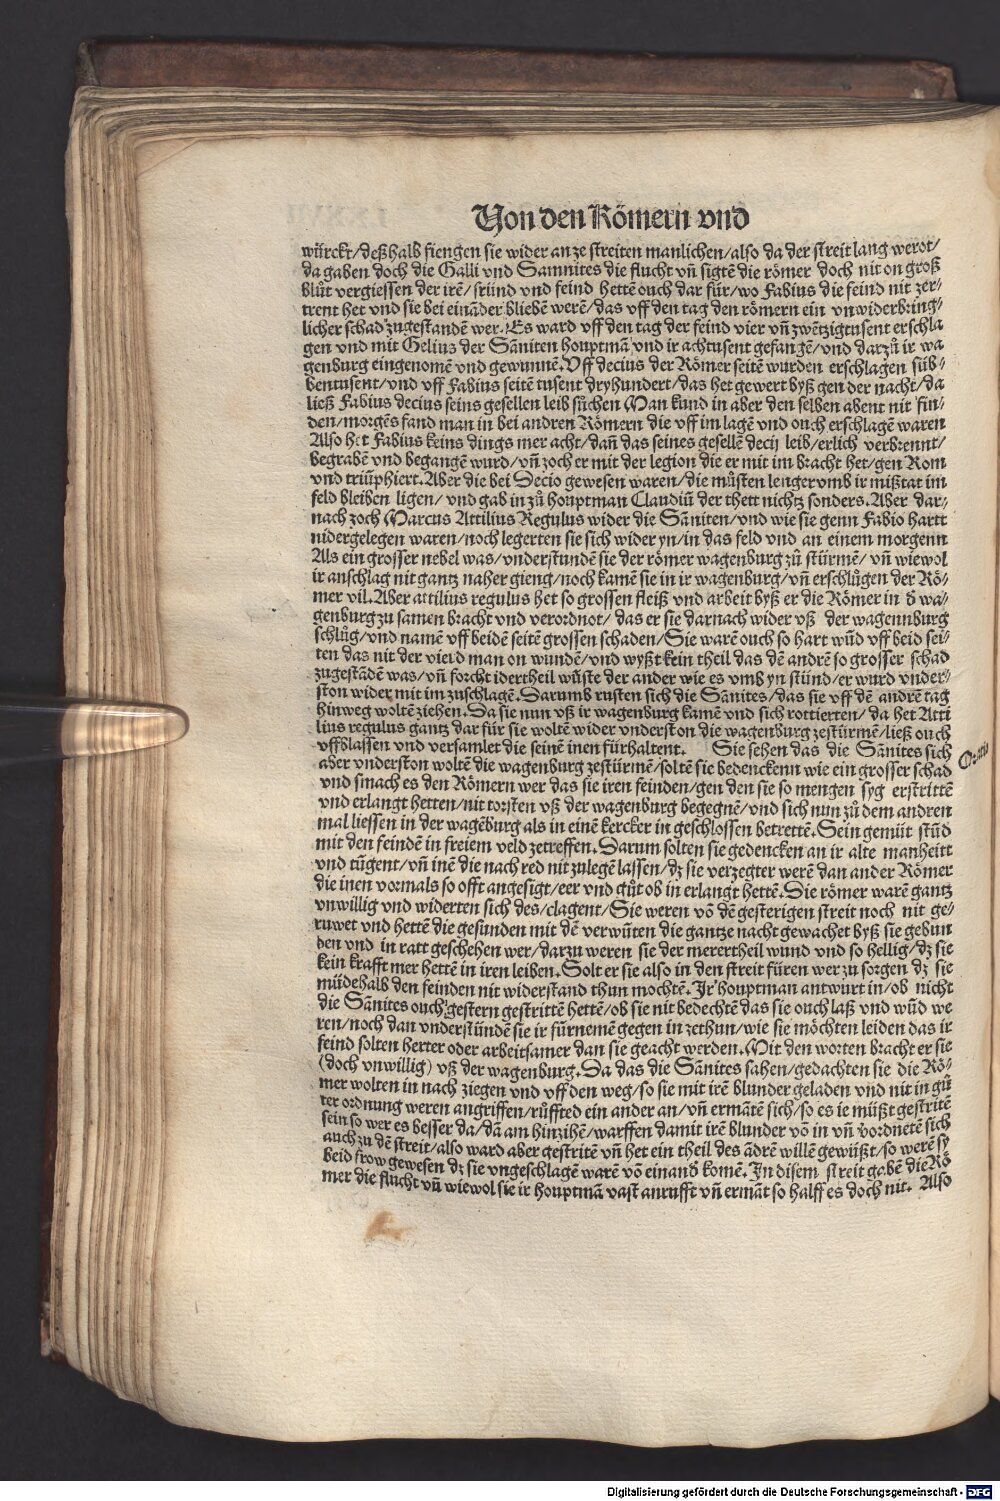 Von den Römern vnd
würckt/deßhalb fiengen sie wider an ze streiten manlichen/also da der streit lang werot/
da gaben doch die Galli vnd Samnites die flucht vñ sigtẽ die römer doch nit on groß
blůt vergiessen der irẽ/fründ vnd feind hettẽ ouch dar für/wo Fabius die feind nit zer⸗
trent het vnd sie bei einãder bliebẽ werẽ/das vff den tag den römern ein vnwiderbring⸗
licher schad zůgestandẽ wer. Es ward vff den tag der feind vier vñ zwẽtzigtusent erschla
gen vnd mit Gelius der Sãniten houptmã vnd ir achtusent gefangẽ/vnd darzů ir wa
genburg eingenomẽ vnd gewunnẽ. Vff decius der Römer seitẽ wurden erschlagen süb⸗
bentusent/vnd vff Fabius seitẽ tusent dryhundert/das het gewert byß gen der nacht/da
ließ Fabius decius seins gesellen leib sůchen Man kund in aber den selben abent nit fin⸗
den/morgẽs fand man in bei andren Römern die vff im lagẽ vnd ouch erschlagẽ waren
Also het Fabius keins dings mer acht/dañ das seines gesellẽ decij leib/erlich verbrennt/
begrabẽ vnd begangẽ wurd/vñ zoch er mit der legion die er mit im bracht het/gen Rom
vnd triũphiert. Aber die bei Decio gewesen waren/die můsten lenger vmb ir mißtat im
feld bleiben ligen/ vnd gab in zů houptman Claudiũ der thett nichtz sonders. Aber dar⸗
nach zoch Marcus Attilius Regulus wider die Sãniten/vnd wie sie genn Fabio hartt
nidergelegen waren/noch legerten sie sich wider yn/in das feld vnd an einem morgenn
Als ein grosser nebel was/vnderstundẽ sie der römer wagenburg zů stürmẽ/ vñ wiewol
ir anschlag nit gantz naher gieng/noch kamẽ sie in ir wagenburg/vñ erschlůgen der Rö⸗
mer vil. Aber attilius regulus het so grossen fleiß vnd arbeit byß er die Römer in d̕ wa⸗
genburg zu samen bracht vnd verordnot/ das er sie darnach wider vß der wagennburg
schlůg/vnd namẽ vff beidẽ seitẽ grossen schaden/Sie warẽ ouch so hart wũd vff beid sei⸗
ten das nit der vierd man on wundẽ/vnd wyßt kein theil das dẽ andrẽ so grosser schad
zůgestãdẽ was/vñ forcht idertheil wüste der ander wie es vmb yn stünd/er wurd vnder⸗
ston wider mit im zuschlagẽ. Darumb rusten sich die Sãnites/das sie vff dẽ andrẽ tag
hinweg woltẽ ziehen. Da sie nun vß ir wagenburg kamẽ vnd sich rottierten/ da het Atti
lius regulus gantz dar für sie woltẽ wider vnderston die wagenburg zestürmẽ/ließ ouch
vffblassen vnd versamlet die seinẽ inen fürhaltent. Sie sehen das die Sãnites sich
Oratio
aber vnderston woltẽ die wagenburg zestürmẽ/soltẽ sie bedenckenn wie ein grosser schad
vnd smach es den Römern wer das sie iren feinden/gen den sie so mengen syg erstrittẽ
vnd erlangt hetten/nit torsten vß der wagenburg begegnẽ/vnd sich nun zů dem andren
mal liessen in der wagẽburg als in einẽ kercker in geschlossen betrettẽ. Sein gemüt stůd
mit den feindẽ in freiem veld zetreffen. Darum solten sie gedencken an ir alte manheitt
vnd tůgent/vñ inẽ die nach red nit zulegẽ lassen/dz sie verzegter werẽ dan ander Römer
die inen vormals so offt angesigt/eer vnd gůt ob in erlangt hettẽ. Die römer warẽ gantz
vnwillig vnd widerten sich des/clagent/Sie weren võ dẽ gesterigen streit noch nit ge⸗
ruwet vnd hettẽ die gesunden mit dẽ verwũten die gantze nacht gewachet byß sie gebun
den vnd in ratt geschehen wer/darzu weren sie der merertheil wund vnd so hellig/dz sie
kein krafft mer hettẽ in iren leiben. Solt er sie also in den streit füren wer zu sorgen dz sie
müdehalb den feinden nit widerstand thun mochtẽ. Ir houptman antwurt in/ob nicht
die Sãnites ouch gestern gestrittẽ hettẽ/ob sie nit bedechtẽ das sie ouch laß vnd wũd we
ren/noch dan vnderstündẽ sie ir fürnemẽ gegen in zethun/wie sie möchten leiden das ir
feind solten herter oder arbeitsamer dan sie geacht werden. Mit den worten bracht er sie
(doch vnwillig) vß der wagenburg. Da das die Sãnites sahen/gedachten sie die Rö⸗
mer wolten in nach ziegen vnd vff den weg/so sie mit irẽ blunder geladen vnd nit in gů
ter ordnung weren angriffen/růffted ein ander an/vñ ermãtẽ sich/so es ie müßt gestritẽ
sein so wer es besser da/dã am hinzihẽ/warffen damit irẽ blunder võ in vñ v̕ordnetẽ sich
auch zu dẽ streit/also ward aber gestritẽ vñ het ein theil des ãdrẽ willẽ gewüßt/so werẽ sy
beid frow gewesen dz sie vngeschlagẽ warẽ võ einand̕ komẽ. In disem streit gaben die Rö
mer die flucht vñ wiewol sie ir houptmã vast anrufft vñ ermãt so halff es doch nit. Also
Digitalisierung gefördert durch die Deutsche Forschungsgemeinschaft - DFG